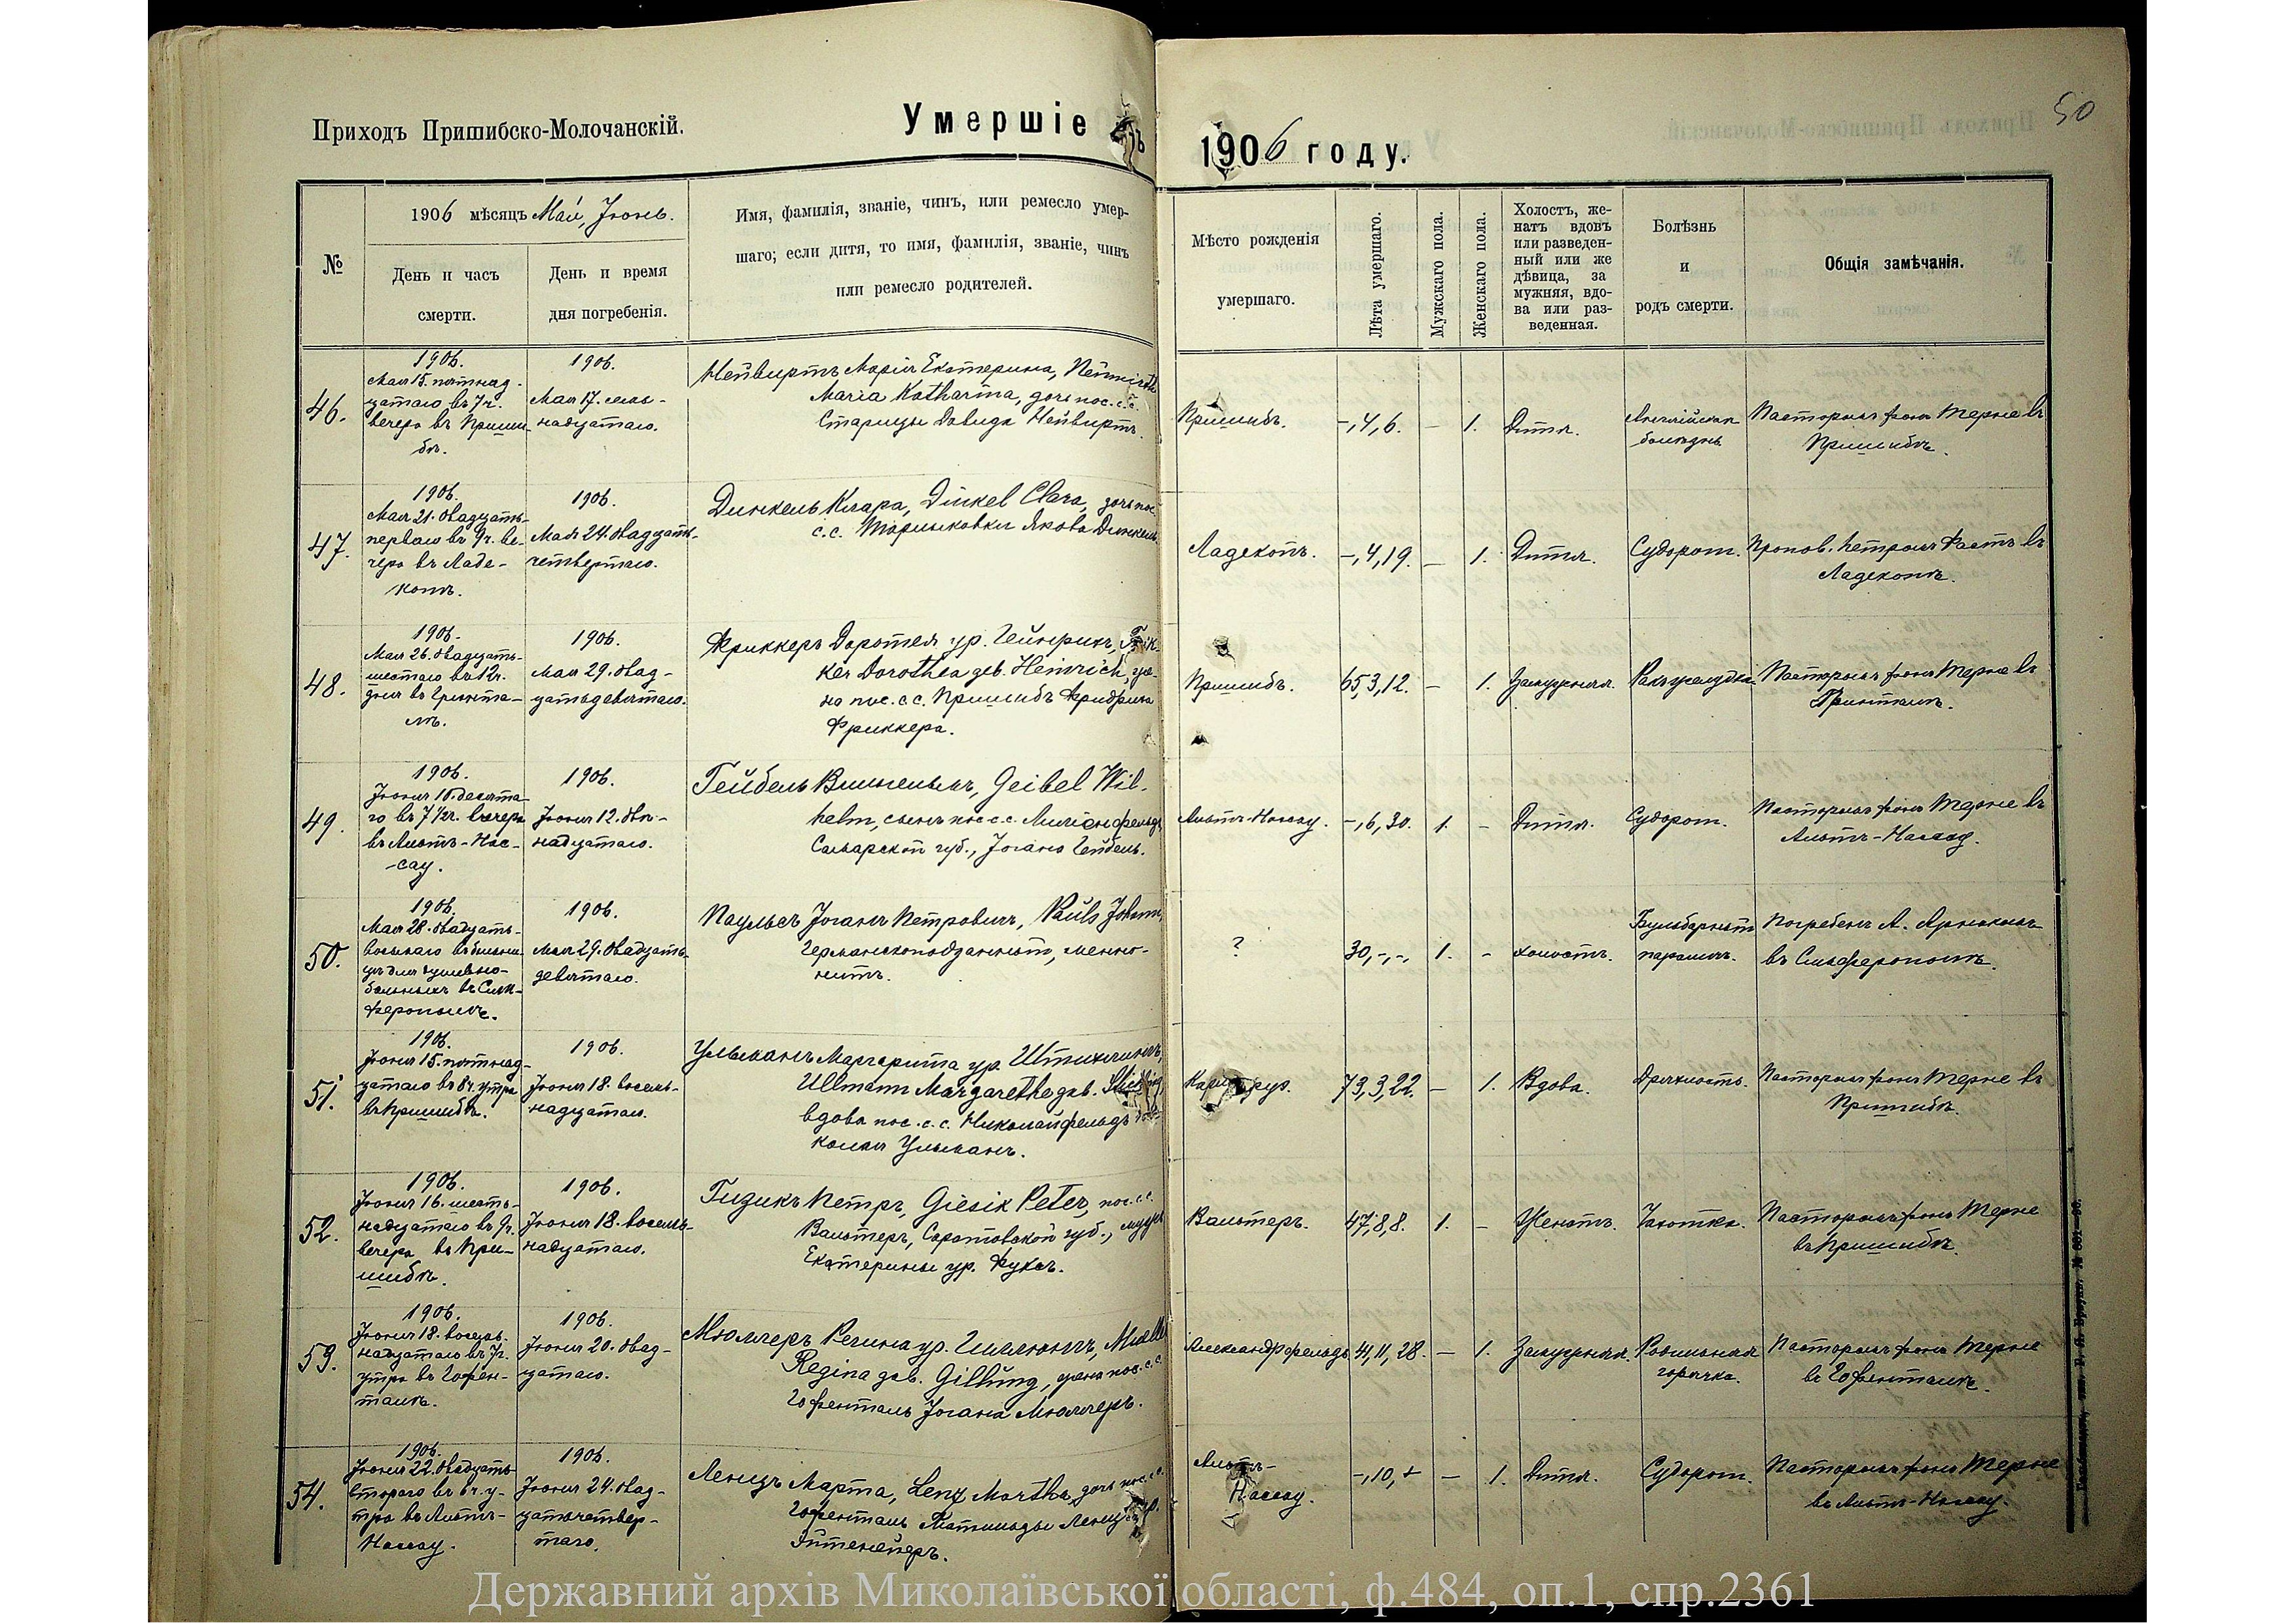 50
Приходъ Пришибско-Молочанскій.
Умершіе
1906 году.
№
1906 мѣсяцъ Май, Іюнь.
День и часъ
смерти.
День и время
дня погребенія.
Имя, фамилія, званіе, чинъ, или ремесло умер-
шаго; если дитя, то имя, фамилія, званіе, чинъ
или ремесло родителей.
Мѣсто рожденія
умершаго.
Лѣта умершаго.
Мужскаго пола.
Женскаго пола.
Холостъ, же-
натъ вдовъ
или разведен-
ный или же
дѣвица, за
мужняя, вдо-
ва или раз-
веденная.
Болѣзнь
и
родъ смерти.
Общія замѣчанія.
46.
1906.
Мая 15. пятнад-
цатаго въ 7 ч.
вечера въ Приши-
бѣ.
1906.
Мая 17. сем-
надцатаго.
Нейвиртъ Марія Екатерина, Neuwirth
Maria Katharina, дочь пос. с.с.
Старицы Давида Нейвиртъ.
Пришибъ.
-,4,6.
-
1.
Дитя.
Англійская
болѣзнь
Пасторомъ фонъ Терне въ
Пришибѣ.
47.
1906.
Мая 21. двадцать-
перваго въ 9 ч. ве-
чера въ Ладе-
копѣ.
1906.
Мая 24. двадцать-
четвертаго.
Динкель Клара, Dinkel Clara, дочь пос.
с.с. Якова Динкель.
Ладекопъ.
-,4,19.
-
1.
Дитя.
Судорог.
Пропов. Петромъ Фастъ въ
Ладекопѣ.
48.
1906.
Мая 26. двадцать-
шестаго въ 12 ч.
дня въ Грюнта-
лѣ.
1906.
Мая 29. двад-
цатьдевятаго.
Фриккеръ Доротея ур. Гейнрихъ, Frik-
ker Dorothea geb. Heinrich, же-
на пос. с.с. Пришибъ Фридриха
Фриккера.
Пришибъ.
65,3,12.
-
1.
Замужняя.
Ракъ желудка
Пасторомъ фонъ Терне въ
Грюнталѣ.
49.
1906.
Іюня 10. десята-
го въ 7 1/2 ч. вечера
въ Альтъ-Нас-
сау.
1906.
Іюня 12. двѣ-
надцатаго.
Гейбель Вильгельмъ, Geibel Wil-
helm, сынъ пос. с.с. Лиліенфельдъ,
Самарской губ., Іогана Гейбель.
Альтъ-Нассау.
-,6,30.
1.
-
Дитя.
Судорог.
Пасторомъ фонъ Терне въ
Альтъ-Нассау.
50.
1906.
Мая 28. двадцать-
восьмаго въ больни-
цѣ для душевно-
больныхъ въ Сим-
ферополѣ.
1906.
Мая 29. двадцать-
девятаго.
Паульсъ Іоганъ Петровичъ, Pauls Johann,
Германскоподданный, менно-
нитъ.
?
30,-,-.
1.
-
холостъ.
Бульбарный
параличъ.
Погребенъ А.
въ Симферополѣ.
51.
1906.
Іюня 15. пятнад-
цатаго въ 8 ч. утра
въ Пришибѣ.
1906.
Іюня 18. восем-
надцатаго.
Ульманъ Маргарита ур.
Ullmann Margarethe geb.
вдова пос. с.с. Николайфельдъ
Ульманъ.
73,3,22.
-
1.
Вдова.
Дряхлость.
Пасторомъ фонъ Терне въ
Пришибѣ.
52.
1906.
Іюня 16. шест-
надцатаго въ 9 ч.
вечера въ При-
шибѣ.
1906.
Іюня 18. восем-
надцатаго.
Гизикъ Петръ, Giesik Peter, пос. с.с.
Вальтеръ, Саратовской губ., мужъ
Екатерины ур. Фуксъ.
Вальтеръ.
47,8,8.
1.
-
Женатъ.
Чахотка.
Пасторомъ фонъ Терне
въ Пришибѣ.
53.
1906.
Іюня 18. восем-
надцатаго въ 7 ч.
утра въ Гофен-
талѣ.
1906.
Іюня 20. двад-
цатаго.
Мюллеръ Регина ур. Гиллюнгъ, Mueller
Regina geb. Gillung, жена пос. с.с.
Гофенталь Іогана Мюллеръ.
Александрфельдъ
41,11,28.
-
1.
Замужняя.
Родильная
горячка.
Пасторомъ фонъ Терне
въ Гофенталѣ.
54.
1906.
Іюня 22. двадцать-
втораго въ 6 ч. у-
тра въ Альтъ-
Нассау.
1906.
Іюня 24. двад-
цатьчетвер-
таго.
Ленцъ Марта, Lenz Martha, дочь пос. с.с.
Гофенталь Матильды Ленцъ
Альтъ-
Нассау.
-,10,+
-
1.
Дитя.
Судорог.
Пасторомъ фонъ Терне
въ Альтъ-Нассау.
Державний архів Миколаївської області, ф.484, оп.1, спр.2361